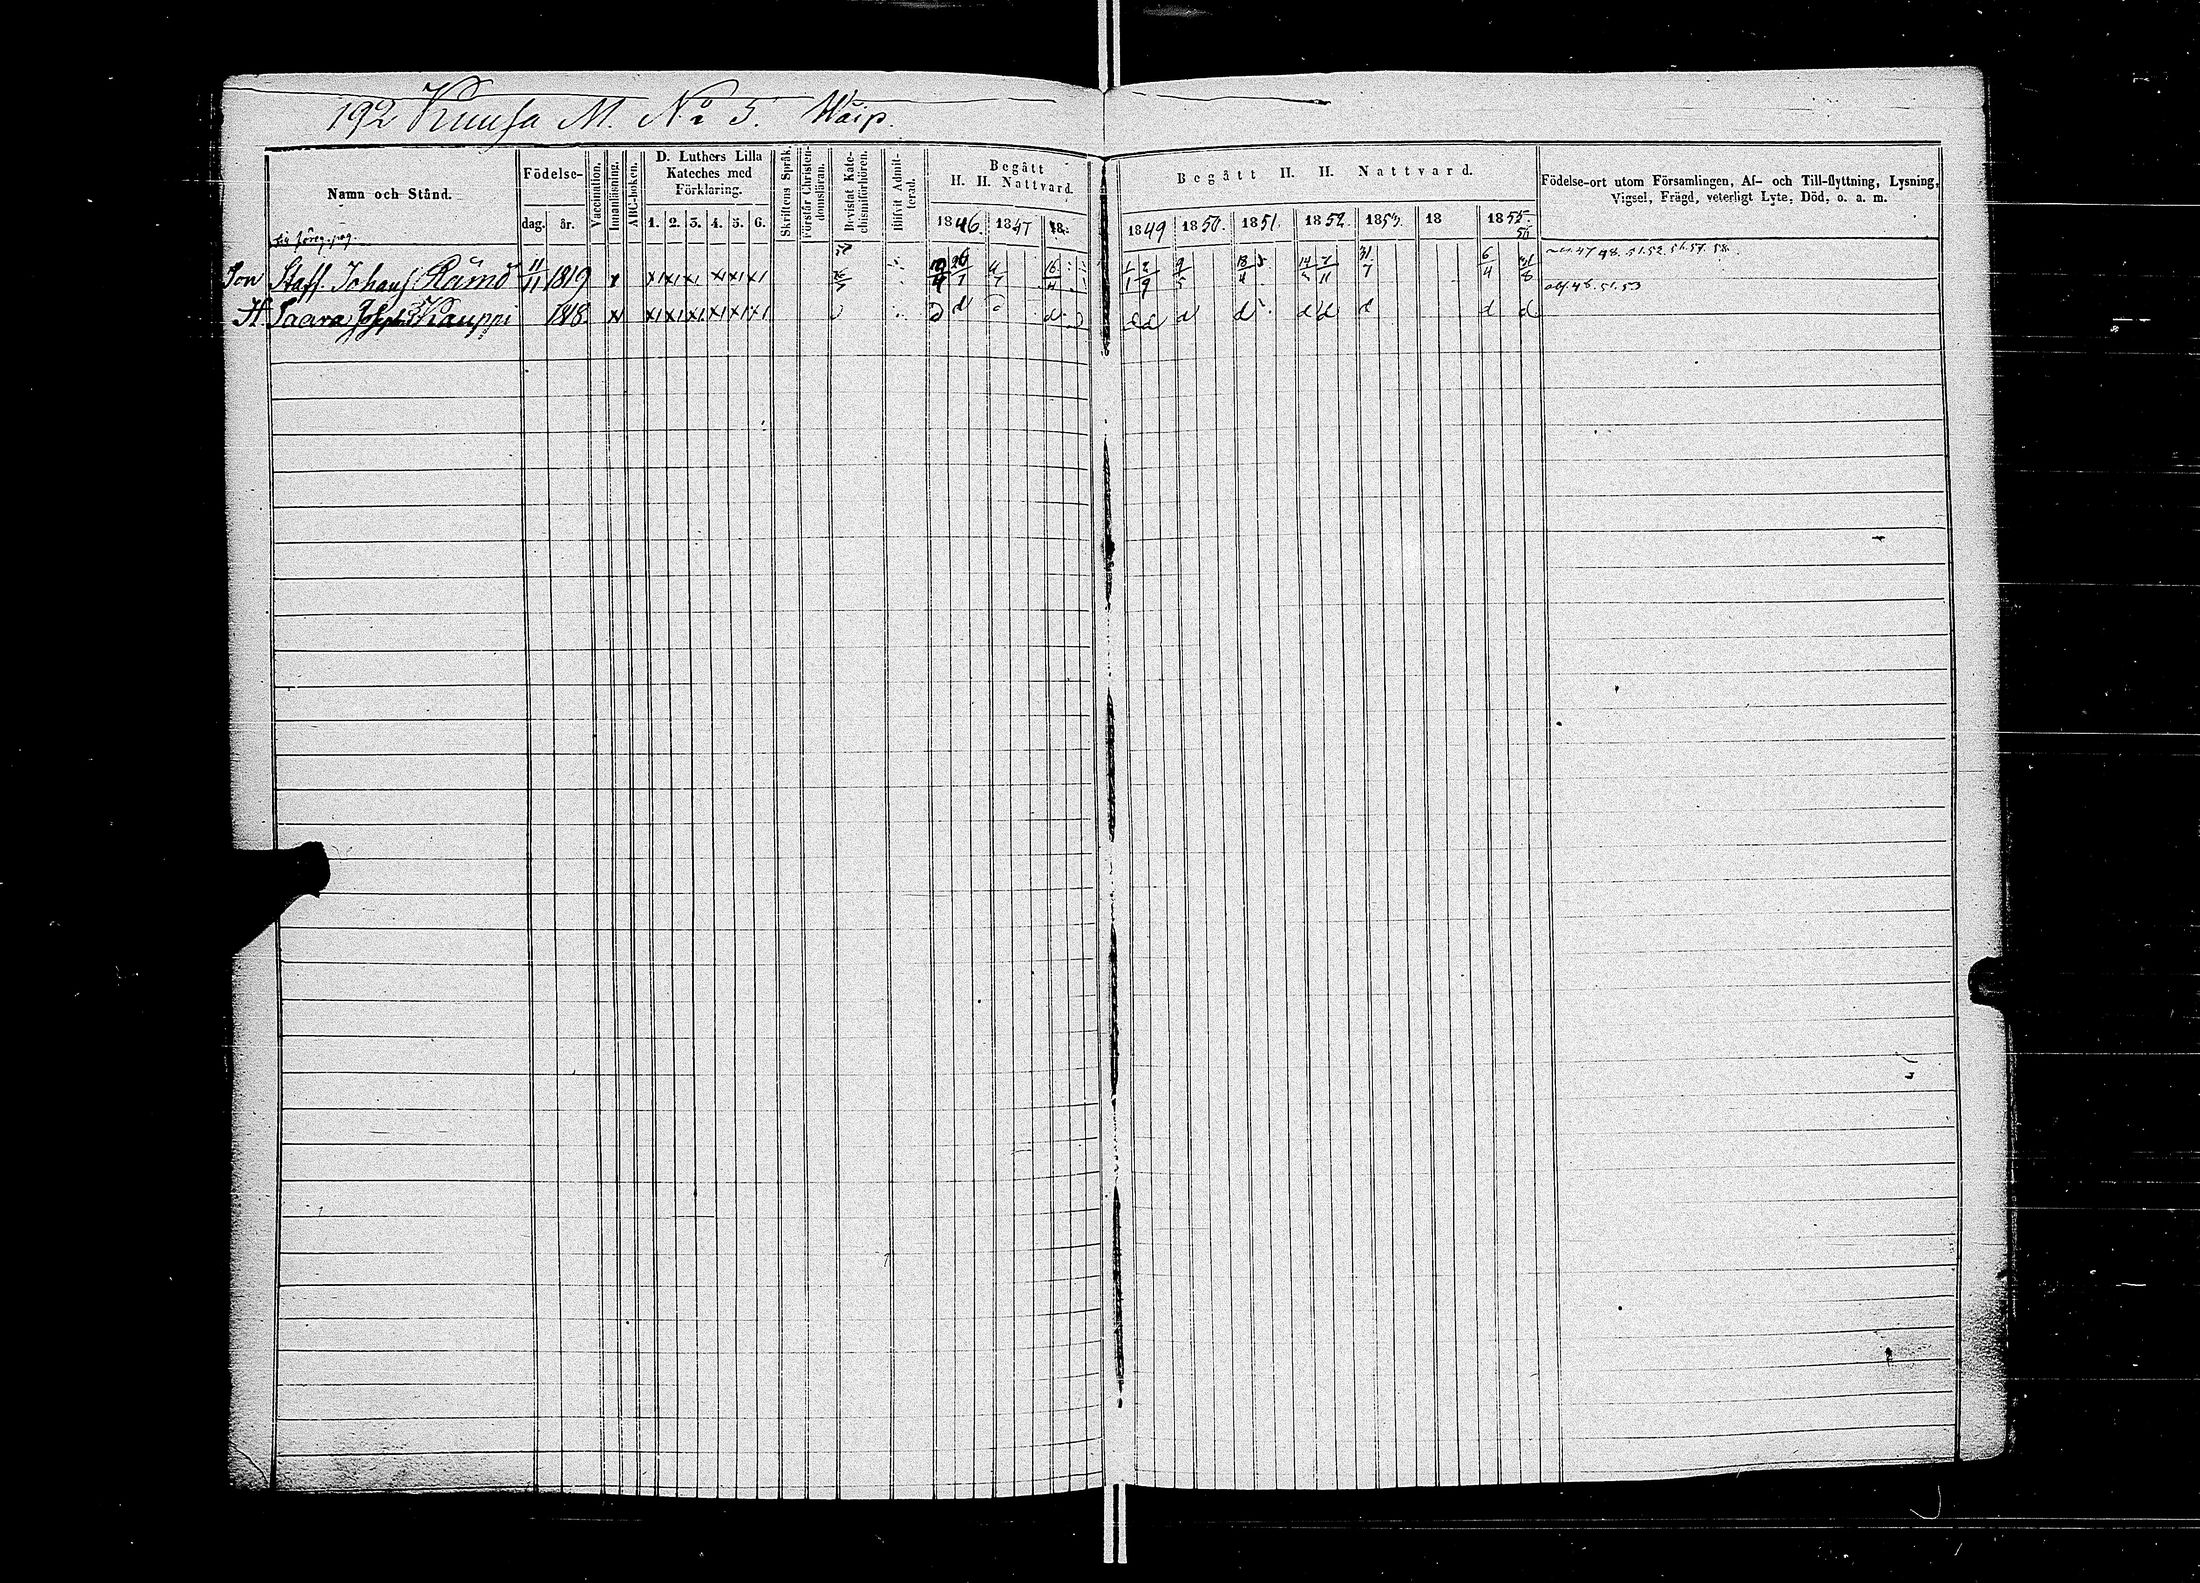 192 Kuusa M. No 5. Waip.
Namn och Stånd.
Födelse-
dag. år.
Vaccination.
Innanläsning.
ABC-boken.
D. Luthers Lilla
Kateches med
Förklaring.
1. 2. 3. 4. 5. 6.
Skriftens Språk.
Förstår Christen-
domsläran.
Bevistat Kate-
chismiförhören.
Blifvit Admit-
terad.
Begått
H. H. Nattvard.
1846. 1847 18
Begått H. H. Nattvard.
1849 1850. 1851. 1852. 1853. 18 1855
56
Födelse-ort utom Församlingen, Af- och Till-flyttning, Lysning,
Vigsel, Frägd, veterligt Lyte, Död, o. a. m.
föreg. pag.
47 48. 51. 52. 56. 57. 58
Son Staff. Johans 11/11 1819 x x x x x x x 26/7 16/4 1/1 2/9 9/5 18/4 31/7 6/4 31/8
46. 51. 53
H. Saara Josephs Kauppi 1818 x x x x x x x d d d d d d d d d d d